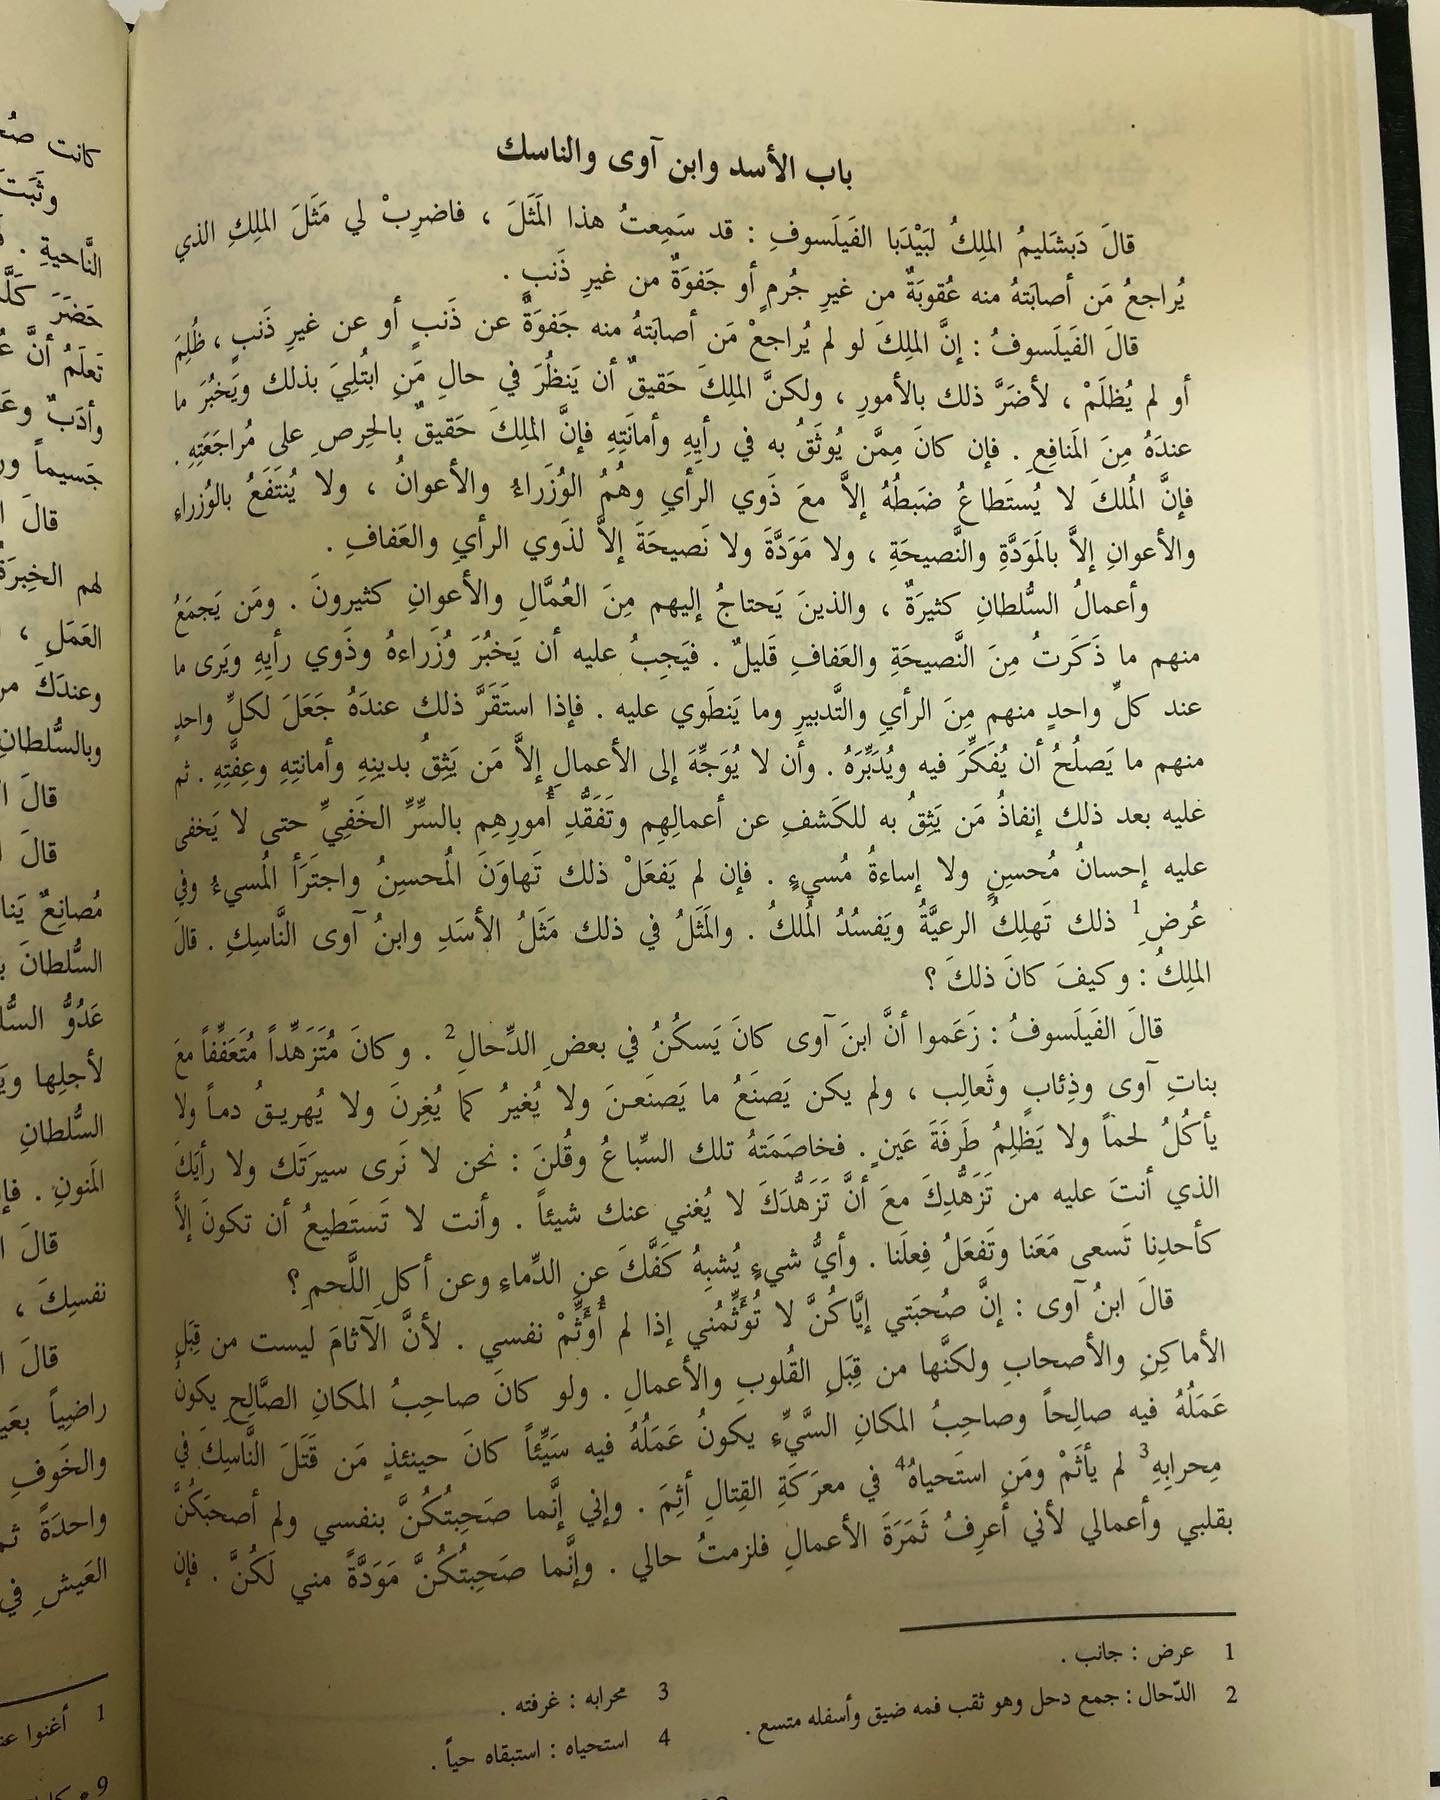 باب الأسد وابن آوى والناسك
قالَ دَبشَليمُ الملِكُ لبَيْدَبا الفَيلَسوفِ : قد سَمِعتُ هذا المَثَلَ ، فاضرِبْ لي مَثَلَ الملِكِ الذي
يُراجعُ مَن أصابَتهُ منه عُقوبَةٌ من غيرِ جُرمٍ أو جَفوَةٌ من غيرِ ذَنبٍ .
قالَ الفَيلَسوفُ : إنَّ الملِكَ لو لم يُراجعْ مَن أصابَتهُ منه جَفوَةٌ عن ذَنبٍ أو عن غيرِ ذَنبٍ ، ظُلِمَ
أو لم يُظلَمْ ، لأضَرَّ ذلك بالأمورِ ، ولكنَّ الملِكَ حَقيقٌ أن يَنظُرَ في حالِ مَنِ ابتُلِيَ بذلك ويَخبُرَ ما
عندَهُ مِنَ المَنافِعِ . فإن كانَ مِمَّن يُوثَقُ به في رأيِهِ وأمانَتِهِ فإنَّ الملِكَ حَقيقٌ بالحِرصِ على مُراجَعَتِهِ .
فإنَّ المُلكَ لا يُستَطاعُ ضَبطُهُ إلاَّ معَ ذَوي الرأيِ وهُمُ الوُزَراءُ والأعوانُ ، ولا يُنتَفَعُ بالوُزراءِ
والأعوانِ إلاَّ بالمَوَدَّةِ والنَّصيحَةِ ، ولا مَوَدَّةَ ولا نَصيحَةَ إلاَّ لذَوي الرأيِ والعَفافِ .
وأعمالُ السُّلطانِ كثيرَةٌ ، والذينَ يَحتاجُ إليهم مِنَ العُمَّالِ والأعوانِ كثيرونَ . ومَن يَجمَعُ
منهم ما ذَكَرتُ مِنَ النَّصيحَةِ والعَفافِ قَليلٌ . فيَجِبُ عليه أن يَخبُرَ وُزَراءهُ وذَوي رأيِهِ ويَرى ما
عند كلِّ واحدٍ منهم مِنَ الرأيِ والتَّدبيرِ وما يَنطَوي عليه . فإذا استَقَرَّ ذلك عندَهُ جَعَلَ لكلِّ واحدٍ
منهم ما يَصلُحُ أن يُفَكِّرَ فيه ويُدَبِّرَهُ . وأن لا يُوَجِّهَ إلى الأعمالِ إلاَّ مَن يَثِقُ بدينِهِ وأمانتِهِ وعِفَّتِهِ . ثم
عليه بعد ذلك إنفاذُ مَن يَثِقُ به للكَشفِ عن أعمالِهِم وتَفَقُّدِ أُمورِهِم بالسِّرِّ الخَفِيِّ حتى لا يَخفى
عليه إحسانُ مُحسِنٍ ولا إساءةُ مُسيءٍ . فإن لم يَفعَلْ ذلك تَهاوَنَ المُحسِنُ واجتَرَأ المُسيءُ وفي
عُرضِ1 ذلك تَهلِكُ الرعيَّةُ ويَفسُدُ المُلكُ . والمَثَلُ في ذلك مَثَلُ الأسَدِ وابنُ آوى النَّاسِكِ . قالَ
الملِكُ : وكيفَ كانَ ذلكَ ؟
قالَ الفَيلَسوفُ : زَعَموا أنَّ ابنَ آوى كانَ يَسكُنُ في بعضِ الدِّحالِ2 . وكانَ مُتَزَهِّداً مُتَعَفِّفاً معَ
بناتِ آوى وذِئابٍ وثَعالِب ، ولم يكن يَصنَعُ ما يَصنَعنَ ولا يُغيرُ كما يُغِرنَ ولا يُهريقُ دماً ولا
يأكُلُ لحماً ولا يَظلِمُ طَرفَةَ عَينٍ . فخاصَمَتهُ تلك السِّباعُ وقُلنَ : نحن لا نَرى سيرَتَك ولا رأيَكَ
الذي أنتَ عليه من تَزَهُّدِكَ معَ أنَّ تَزَهُّدَكَ لا يُغني عنك شيئاً . وأنت لا تَستَطيعُ أن تكونَ إلاَّ
كأحدِنا تَسعى مَعَنا وتَفعَلُ فِعلَنا . وأيُّ شيءٍ يُشبِهُ كَفَّكَ عنِ الدِّماءِ وعن أكلِ اللَّحمِ ؟
قالَ ابنُ آوى : إنَّ صُحبَتي إيَّاكُنَّ لا تُؤَثِّمُني إذا لم أُؤَثِّمْ نفسي . لأنَّ الآثامَ ليست من قِبَلِ
الأماكِنِ والأصحابِ ولكنَّها من قِبَلِ القُلوبِ والأعمالِ . ولو كانَ صاحِبُ المكانِ الصَّالِحِ يكونُ
عَمَلُهُ فيه صالِحاً وصاحِبُ المكانِ السَّيِّءِ يكونُ عَمَلُهُ فيه سَيِّئاً كانَ حينئذٍ مَن قَتَلَ النَّاسِكَ في
مِحرابِهِ3 لم يأثَمْ ومَنِ استَحياهُ4 في معرَكَةِ القِتالِ أثِمَ . وإني إنَّما صَحِبتُكُنَّ بنفسي ولم أصحَبكُنَّ
بقلبي وأعمالي لأني أعرِفُ ثَمَرَةَ الأعمالِ فلزمتُ حالي . وإنَّما صَحِبتُكُنَّ مَوَدَّةً مني لَكُنَّ . فإن
1 عرض : جانب .
2 الدّحال : جمع دحل وهو ثقب فمه ضيق وأسفله متسع .
3 محرابه : غرفته .
4 استحياه : استبقاه حياً .
كانت
النَّاحيةِ .
حَضَرَ
تَعلَمُ أنَّ
وأدَبٌ
جَسيماً
قالَ
لهم الخِبرَةُ
العَمَلِ ،
وعندَكَ
وبالسُّلطانِ
قالَ
قالَ
مُصانِعٌ
السُّلطانَ
عَدُوُّ
لأجلِها
السُّلطانِ
المَنونِ .
قالَ
نفسِكَ ،
قالَ
راضِياً
والخَوفِ
واحدَةً
العَيشِ في
1 أغنوا